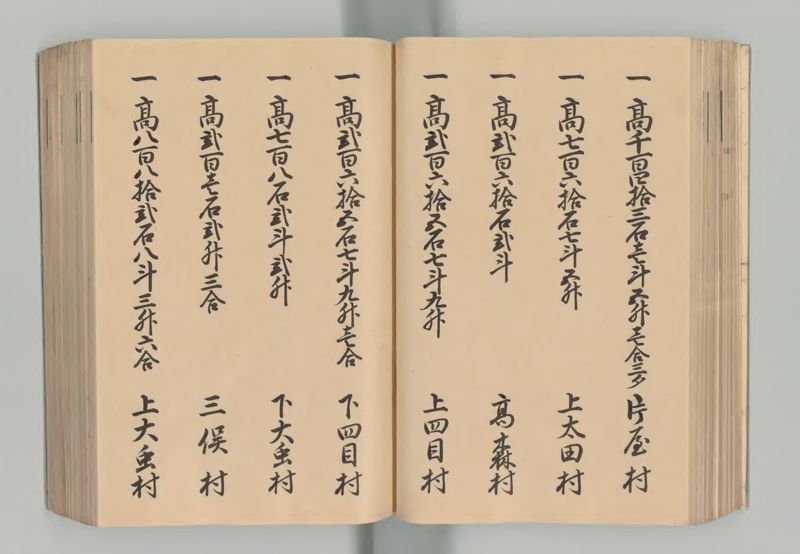 一 高千百四拾三石壱斗五升壱合三夕 片屋村
一 高七百六拾石七斗五升 上太田村
一 高弐百六拾石弐斗 高森村
一 高弐百六拾五石七斗九升 上四目村
一 高弐百六拾五石七斗九升壱合 下四目村
一 高七百八石弐斗弐升 下大虫村
一 高弐百壱石弐升三合 三俣村
一 高八百八拾弐石八斗三升六合 上大虫村